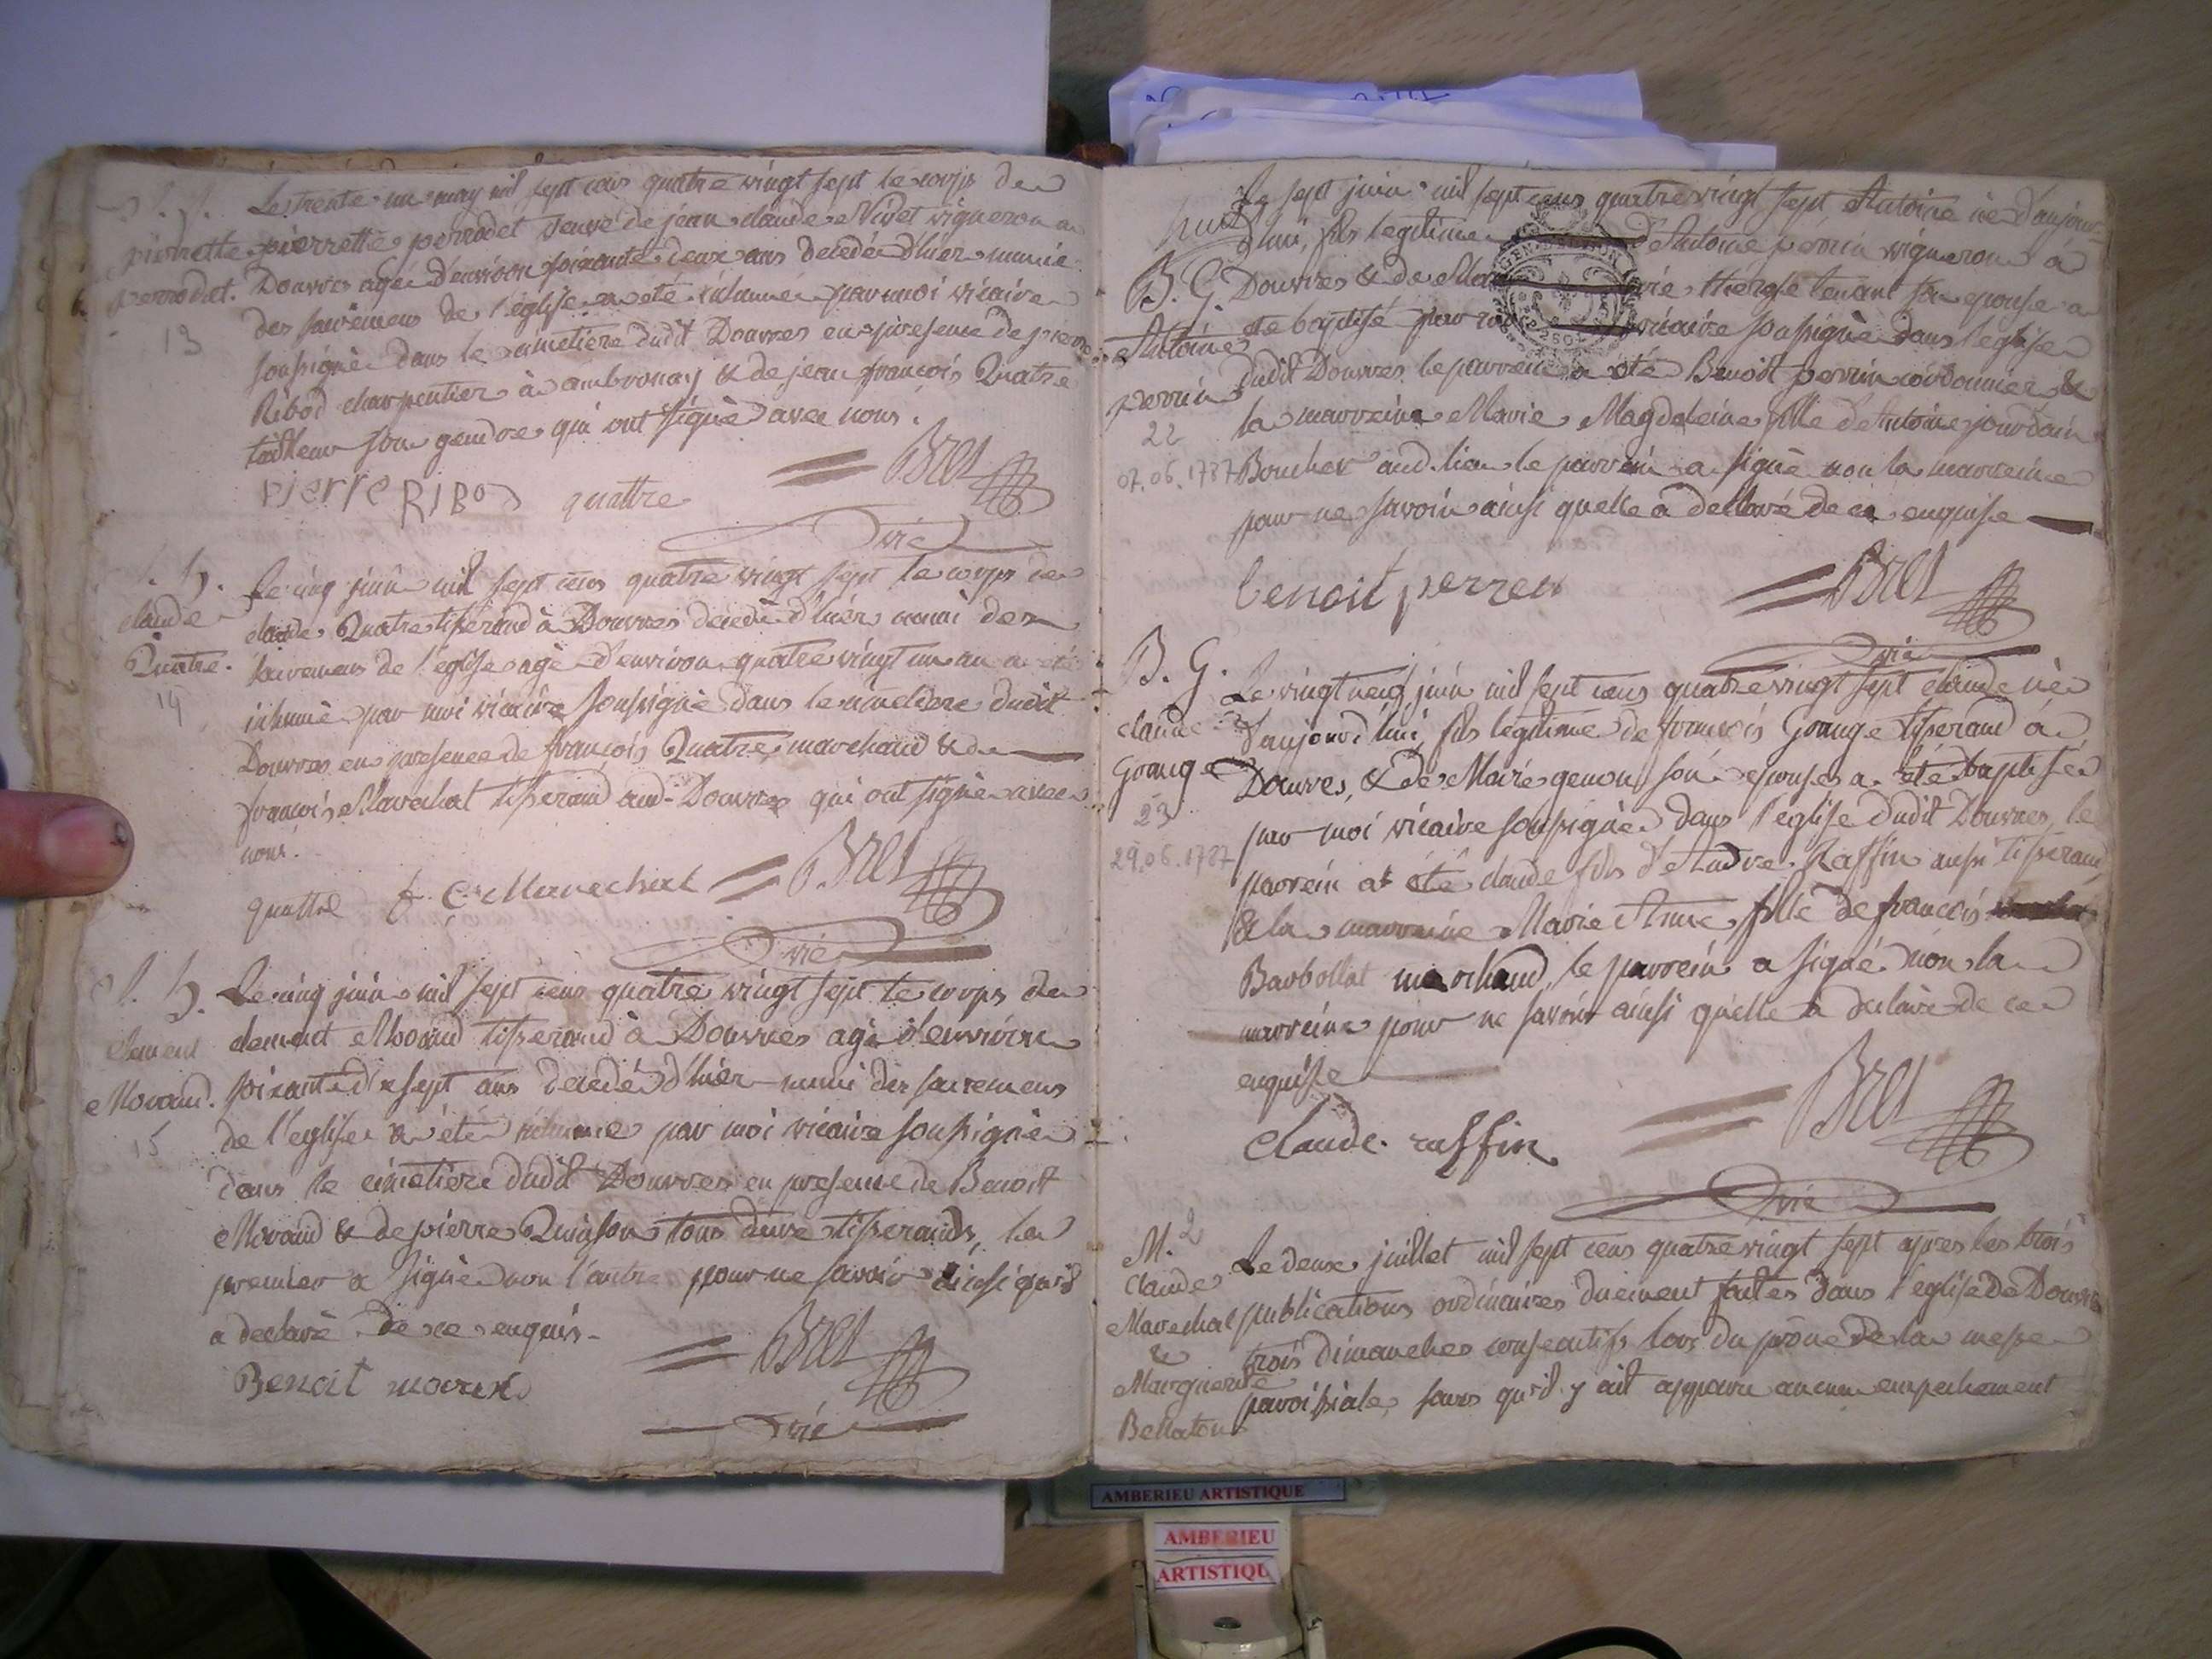 Le trente un may mil sept cens quatre vingt sept le corps de
pierrette pierrette perrodet veuve de jean claude Vivet vigneron a
perrodet. Douvres agée d'environ soixante deux ans decedée d'hier munie
13
des sacremens de l'église a été inhumée par moi vicaire
soussigné dans le cimetiere dudit Douvres en presence de pierre
Ribod charpentier à ambronay & de jean françois Quatre
tailleur son gendre qui ont signé avec nous.
pierre RIBOD quattre Bret
vic
S. H.
claude
Quatre.
14
Le cinq juin mil sept cens quatre vingt sept le corps de
claude Quatre tisserand à Douvres decedé d'hier muni des
sacremens de l'église agé d'environ quatre vingt un an a été
inhumé par moi vicaire soussigné dans le cimetiere dudit
Douvres en presence de françois Quatre marchand & de
françois Marechal tisserand aud. Douvres qui ont signé avec
nous.
quattre f. Marechal Bret
vic
S. H.
clement
Morand.
15
Le cinq juin mil sept cens quatre vingt sept le corps de
clement Morand tisserand à Douvres agé d'environ
soixante dix sept ans decedé d'hier muni des sacremens
de l'eglise a été inhumé par moi vicaire soussigné
dans le cimetiere dudit Douvres en presence de Benoit
Morand & de pierre Quinson tous deux tisserands, le
premier a signé non l'autre pour ne savoir ainsi quil
a declaré de ce enquis.
Benoit moran Bret
vic
huit
B. G.
Antoine
perrin
22
07.06.1787
Le sept juin mil sept cens quatre vingt sept Antoine né d'aujour-
d'hui, fils legitime d'Antoine perrin vigneron à
Douvres & de Marie therese tenant son epouse a
été baptisé par moi vicaire soussigné dans l'eglise
dudit Douvres le parrein a été Benoit perrin cordonnier &
la marreine Marie Magdeleine fille d'Antoine jourdain
Boucher aud. lieu le parrein a signé non la marreine
pour ne savoir ainsi quelle a déclaré de ce enquise
benoit perren Bret
vic
B. G.
claude
Grange
23
29.06.1787
Le vingt neuf juin mil sept cens quatre vingt sept claude né
d'aujourd'hui, fils légitime de françois Grange tisserand à
Douvres, & de Marie genon son epouse a été baptisé
par moi vicaire soussigné dans l'église dudit Douvres, le
parrein a été claude fils d'Andre Raffin aussi tisserand,
& la marreine Marie Anne fille de françois
Barbollat marchand, le parrein a signé non la
marreine pour ne savoir ainsi quelle a declaré de ce
enquise
Claude. raffin Bret
vic
M. 2
claude
Marechal
&
Marguerite
Bellaton
Le deux juillet mil sept cens quatre vingt sept apres les trois
publications ordinaires duement faites dans l'église de Douvres
trois dimanches consecutifs lors du prône de la messe
paroissiale, sans qu'il y ait apparu aucun empechement
AMBERIEU ARTISTIQUE
AMBERIEU
ARTISTIQU